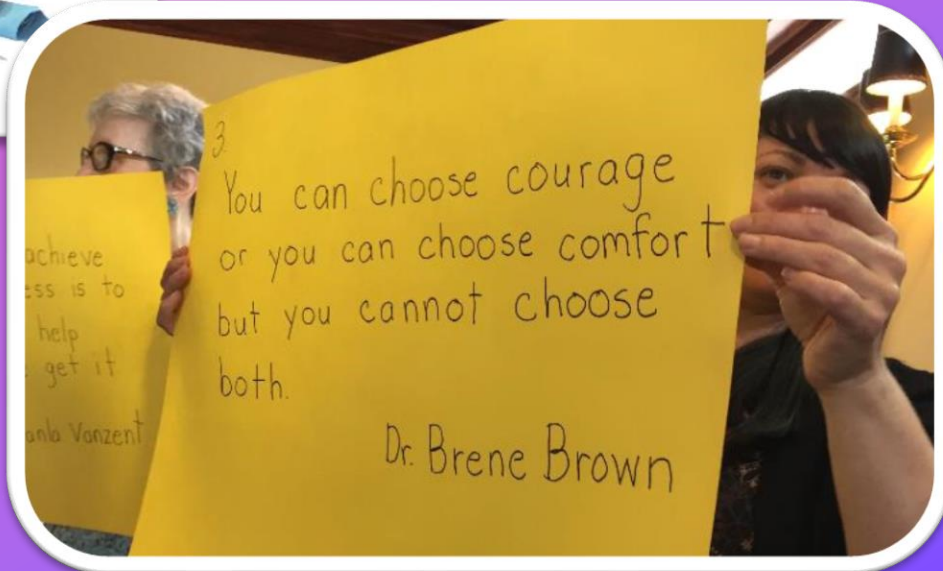 achieve
ess is to
help
get it
anla Vanzent
3.
You can choose courage
or you can choose comfort
but you cannot choose
both.
Dr. Brene Brown